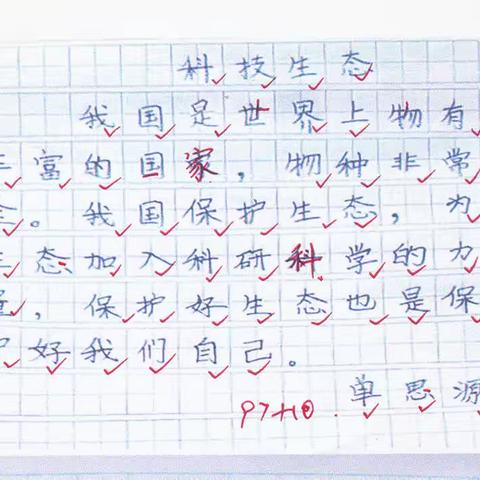 科技生态
我国是世界上物有
丰富的国家，物种非常
全。我国保护生态，为
生态加入科研科学的力
量，保护好生态也是保
护好我们自己。
97+10.
单思源